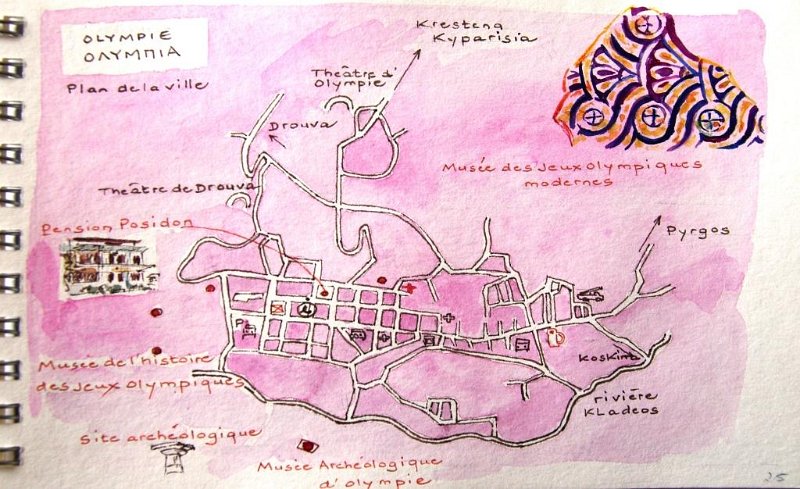 OLYMPIE
ΟΛΥΜΠΙΑ
Plan de la ville
Krestena
Kyparisia
Théâtre d'
Olympie
Drouva
Musée des Jeux Olympiques
modernes
Théâtre de Drouva
Pension Posidon
Pyrgos
Musée de l'histoire
des Jeux Olympiques
Koskina
rivière
KLadeos
Site archéologique
Musée Archéologique
d'Olympie
25